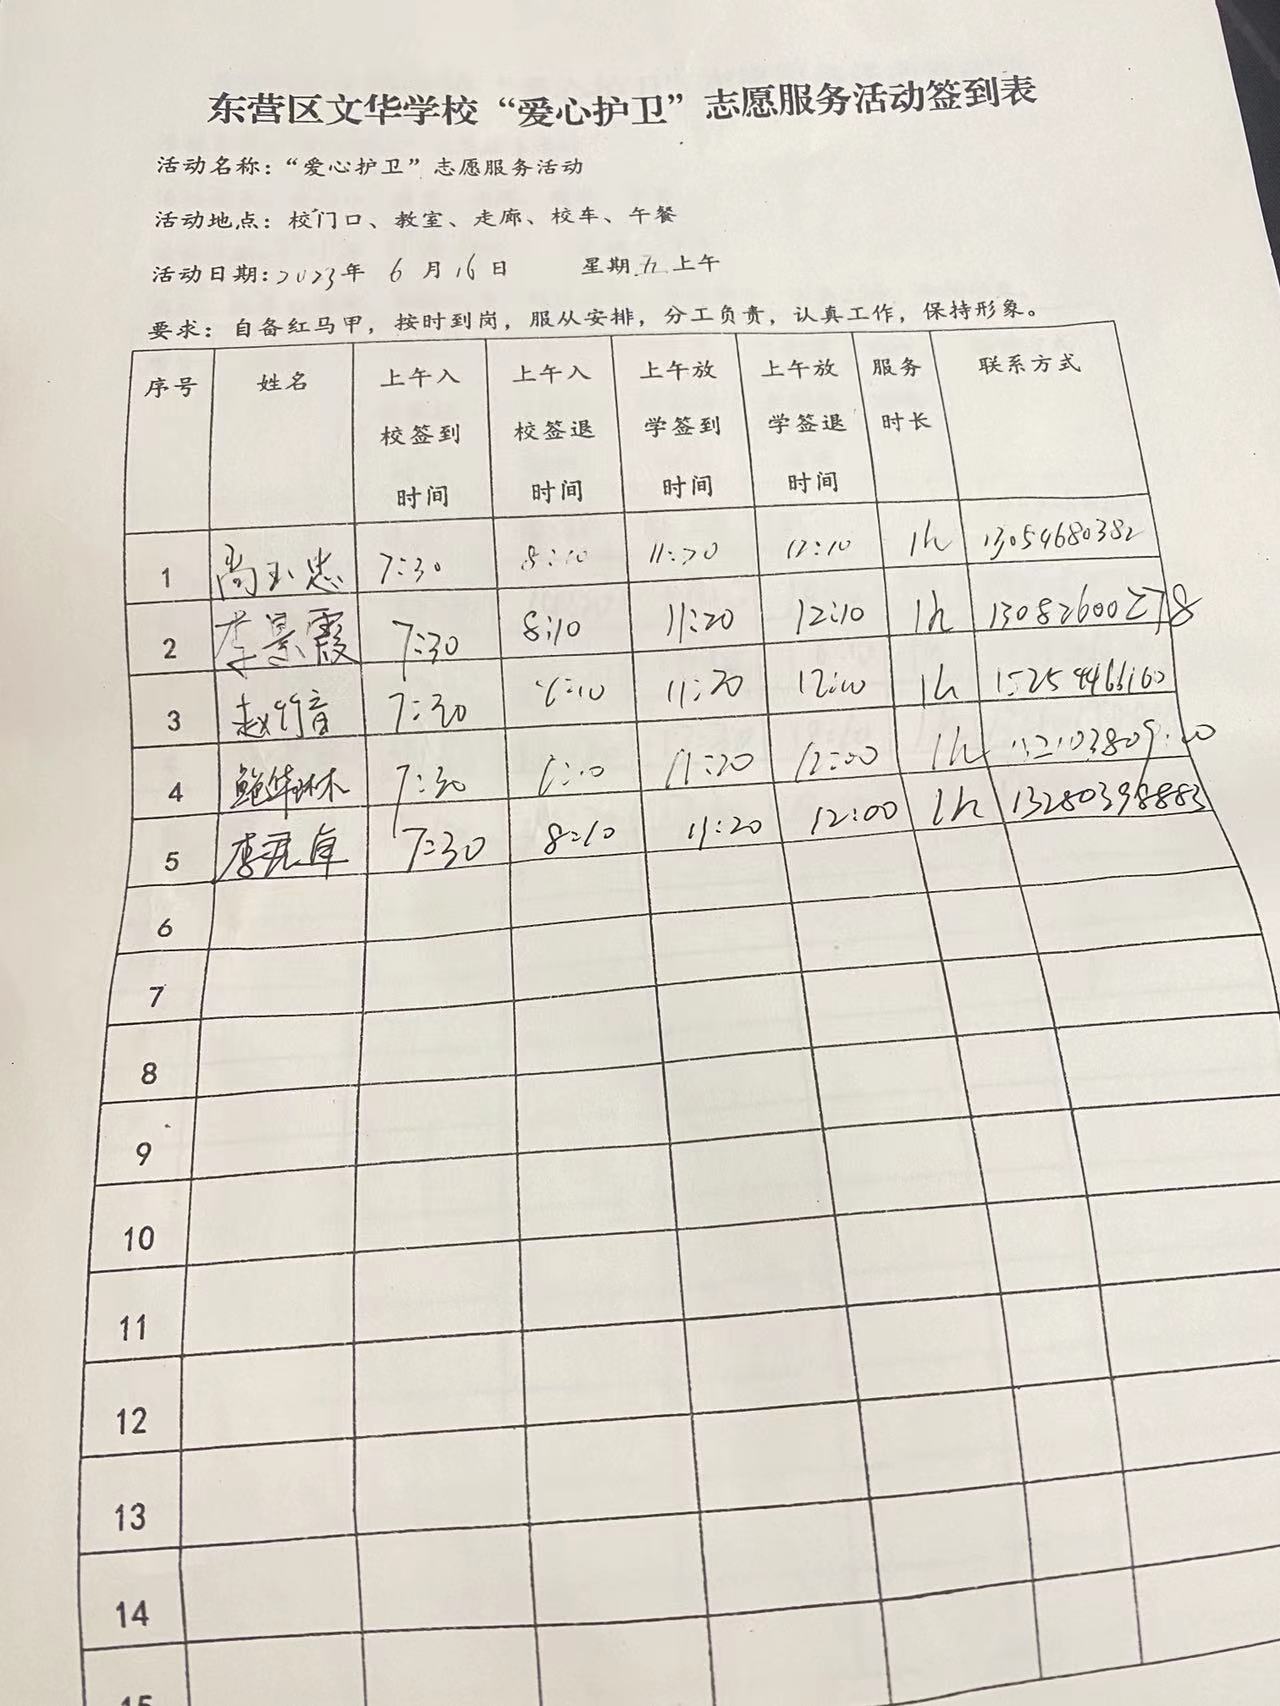 东营区文华学校“爱心护卫”志愿服务活动签到表
活动名称：“爱心护卫”志愿服务活动
活动地点：校门口、教室、走廊、校车、午餐
活动日期：2023年 6 月 16 日 星期五上午
要求：自备红马甲，按时到岗，服从安排，分工负责，认真工作，保持形象。
序号 姓名 上午入校签到时间 上午入校签退时间 上午放学签到时间 上午放学签退时间 服务时长 联系方式
1 7:30 8:10 11:20 12:10 1h 13054680382
2 李景霞 7:30 8:10 11:20 12:10 1h
3 赵竹音 7:30 11:20 1h
4 7:30 11:20 12:00 1h
5 7:30 8:10 11:20 12:00 1h 13280398883
6
7
8
9
10
11
12
13
14
15